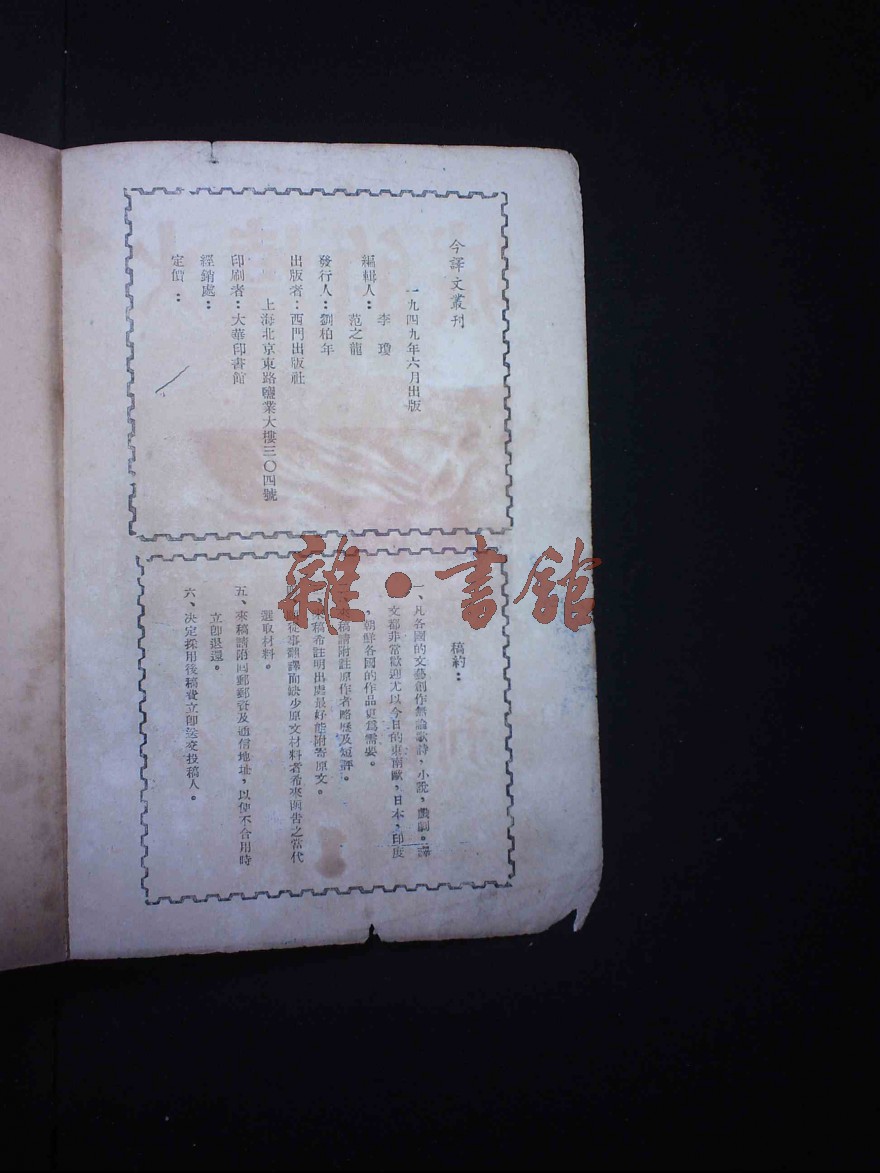 今譯文叢刊
一九四九年六月出版
李瓊
編輯人：
范之龍
發行人：劉柏年
出版者：西門出版社
上海北京東路鹽業大樓三〇四號
印刷者：大華印書館
經銷處：
定價：
稿約：
一、凡各國的文藝創作無論歌詩，小說，戲劇。譯
文都非常歡迎尤以今日的東南歐，日本，印度
，朝鮮各國的作品更爲需要。
來稿請附註原作者略歷及短評。
來稿希註明出處最好能附寄原文。
從事翻譯而缺少原文材料者希來函告之當代
選取材料。
五、來稿請附回郵郵資及通信地址，以便不合用時
立即退還。
六、决定採用後稿費立即送交投稿人。
雜·書館